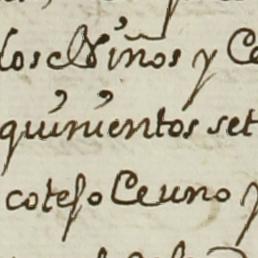 los Niños y Ce
quinientos set
cotejo Ceuno y